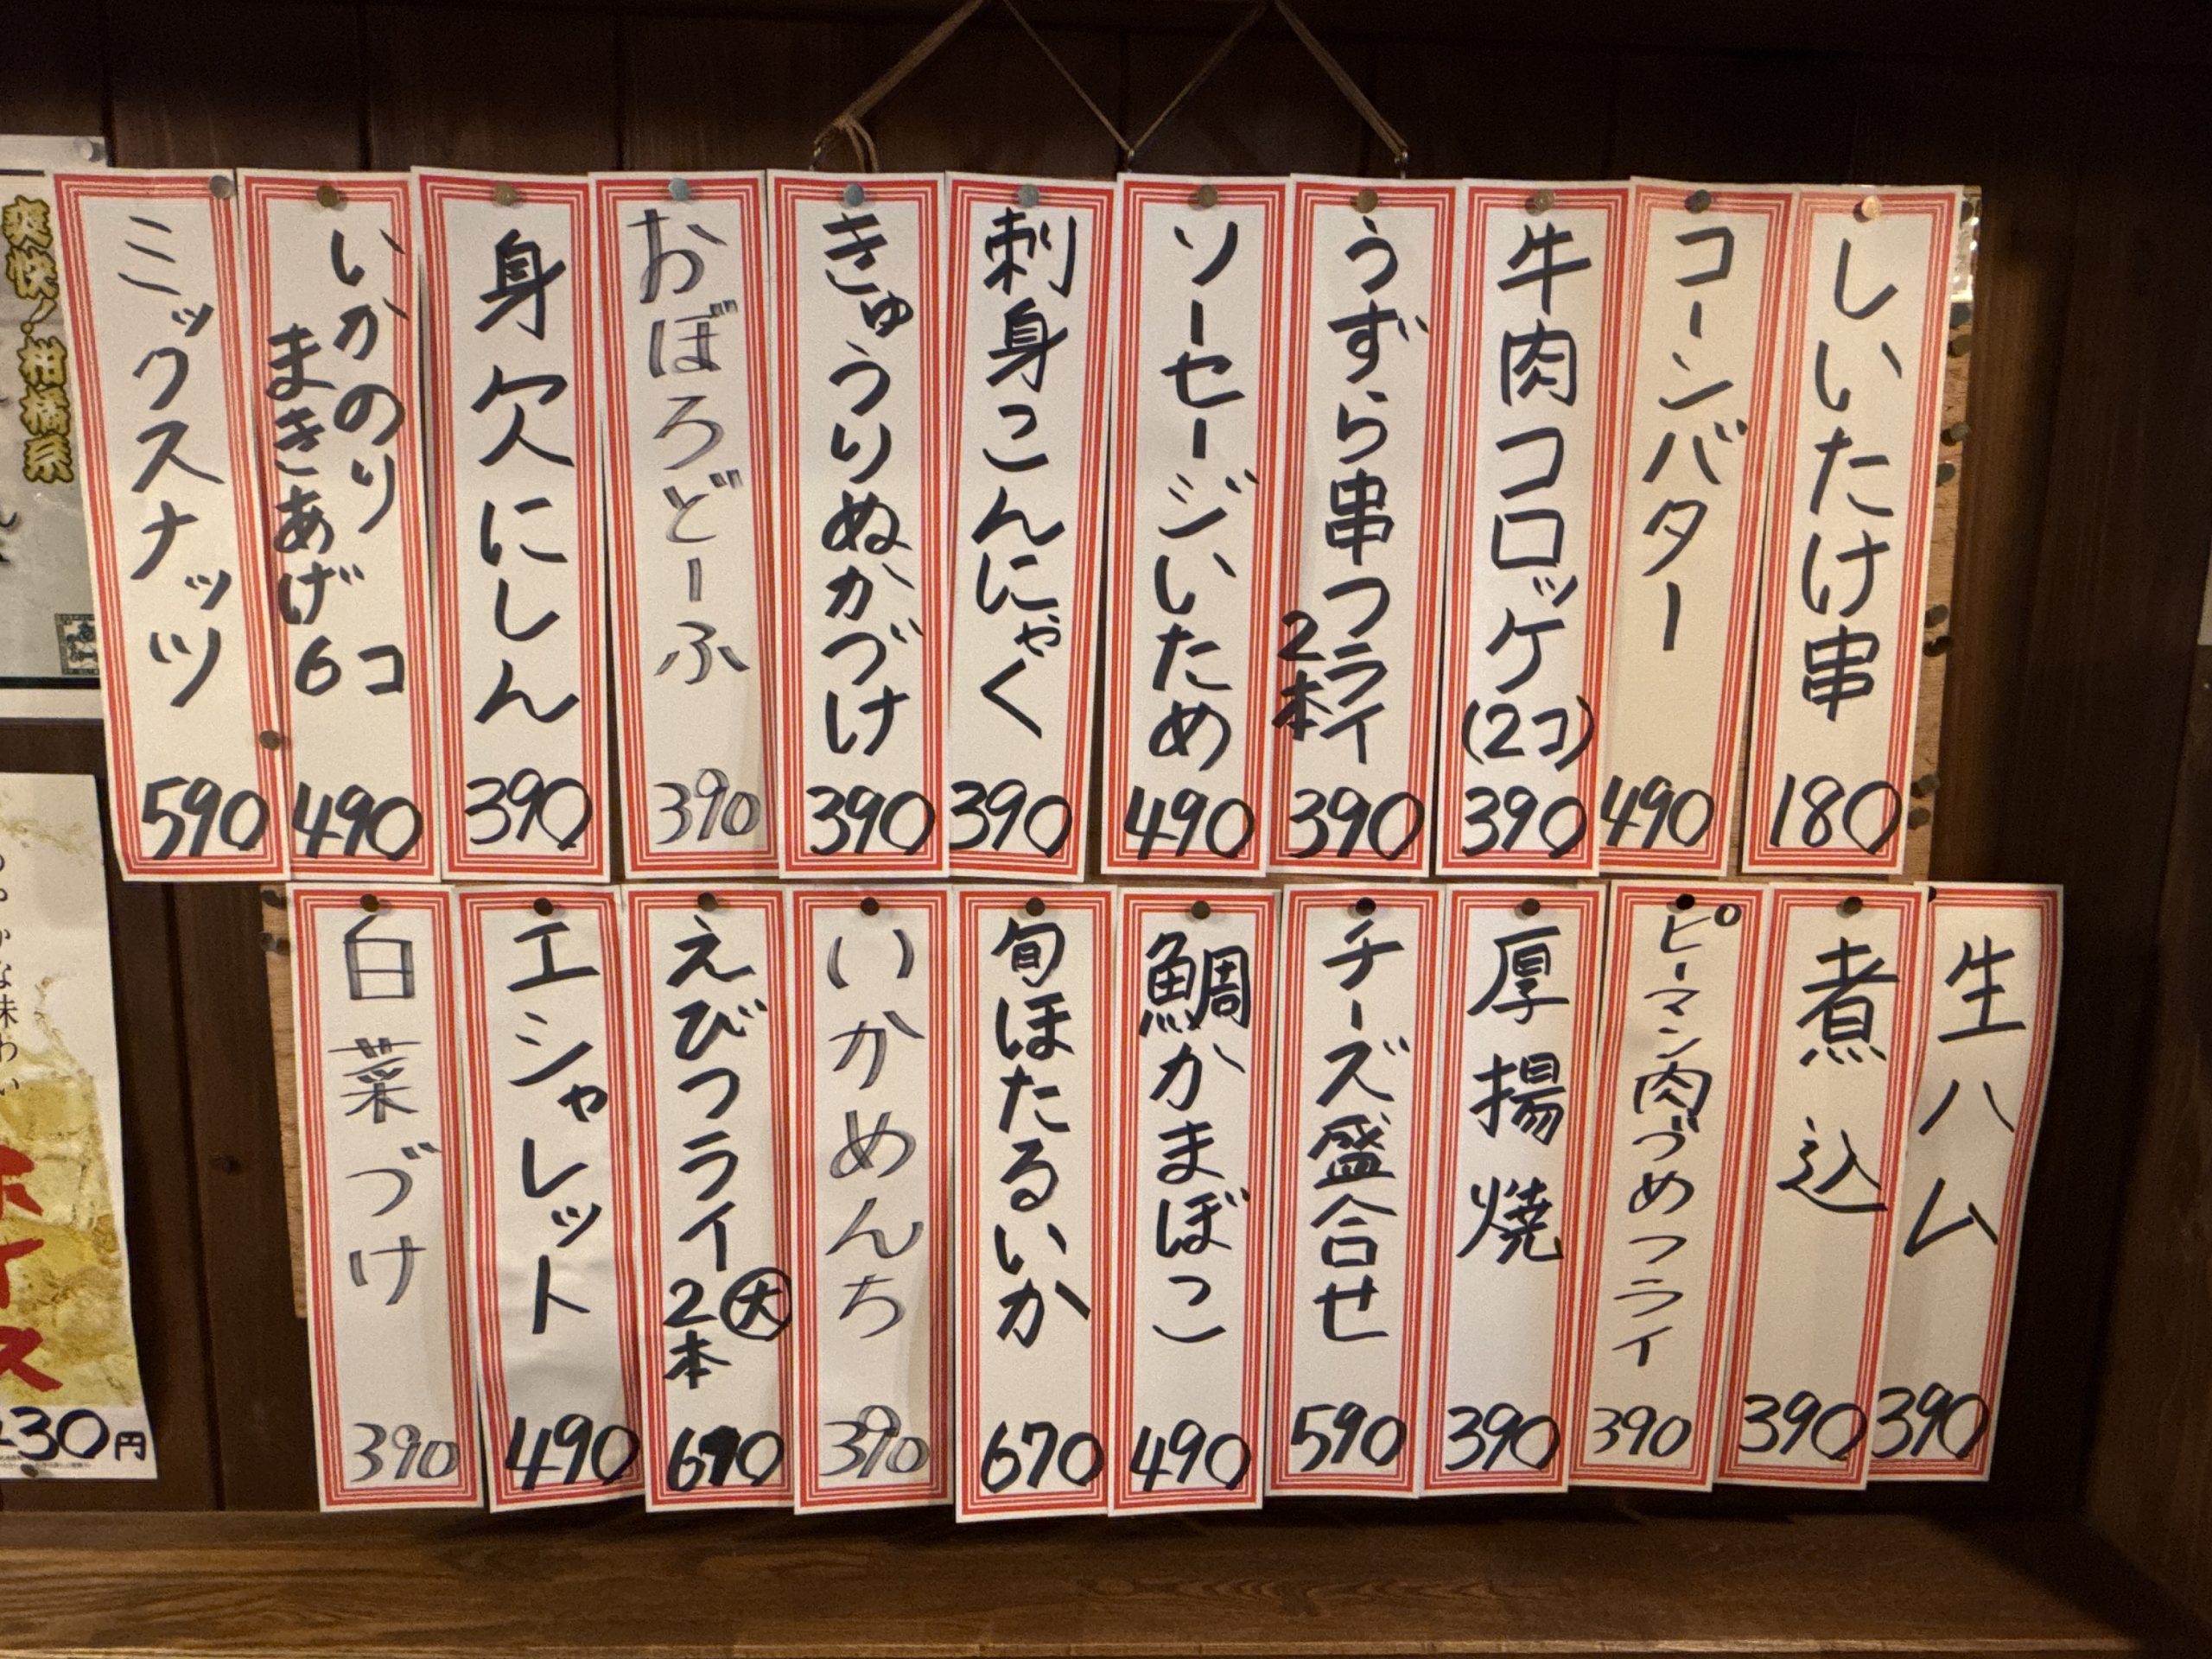 しいたけ串
180
コーンバター
490
牛肉コロッケ
(2コ)
390
うずら串フライ
2本
390
ソーセージいため
490
刺身こんにゃく
390
きゅうりぬかづけ
390
おぼろどーふ
390
身欠にしん
390
いかのり
まきあげ
6コ
490
ミックスナッツ
590
生ハム
390
煮込
390
ピーマン肉づめフライ
390
厚揚焼
390
チーズ盛合せ
590
鯛かまぼこ
490
旬ほたるいか
670
いかめんち
390
えびフライ
大
2本
690
エシャレット
490
白菜づけ
390
爽快!柑橘系
やかな味わい
イス
30円